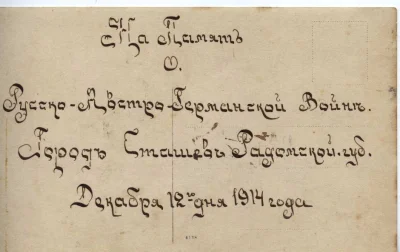 На Память
О.
Русско-Австро-Германской Войнѣ.
Городъ Сташевъ Радомской. губ.
Декабря 12го дня 1914 года